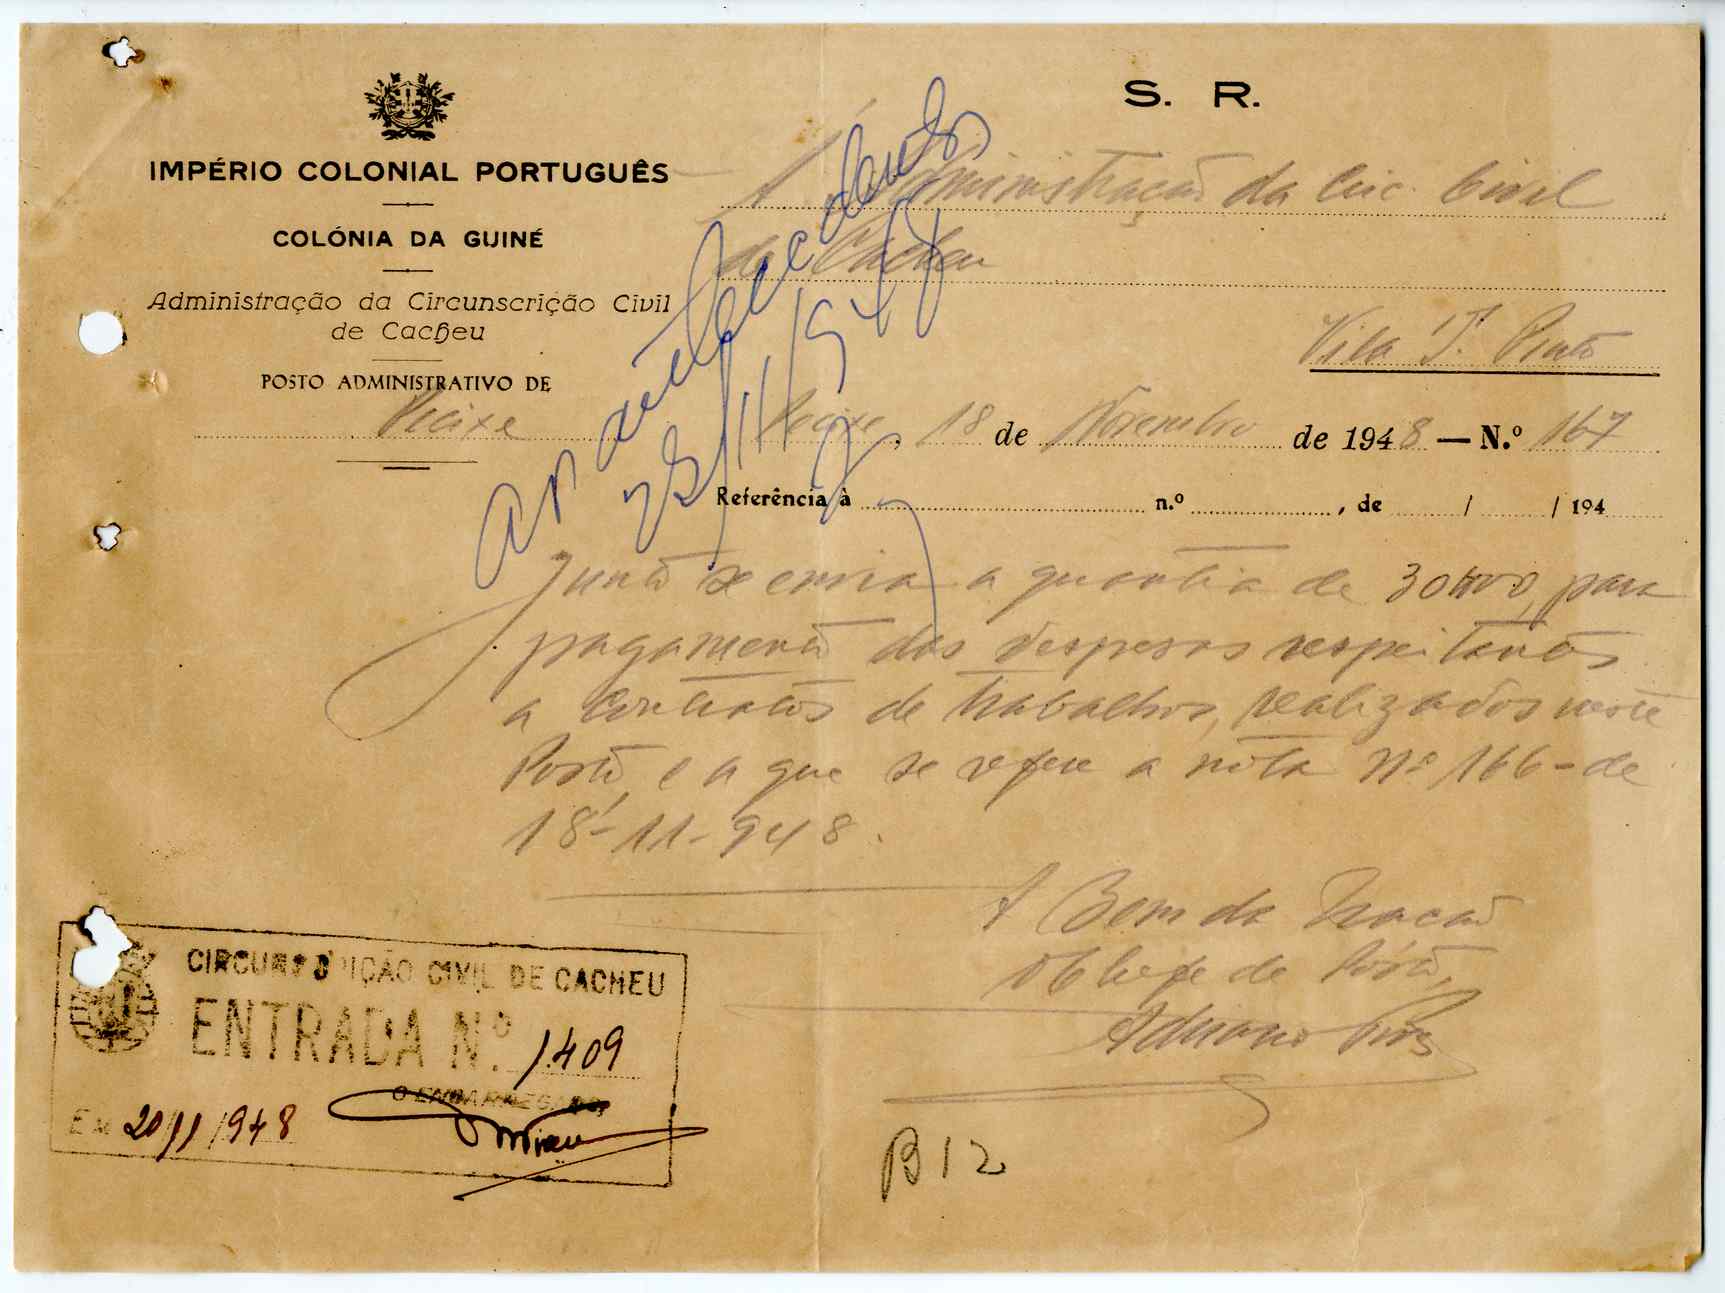 S. R.
IMPÉRIO COLONIAL PORTUGUÊS
COLÓNIA DA GUINÉ
Administração da Circunscrição Civil
de Cacheu
POSTO ADMINISTRATIVO DE
Pecixe
Á Administração da Circ. Civil
de Cacheu
Vila T. Pinto
Pecixe, 18 de Novembro de 1948 — N.º 167
Referência à n.º , de / / 194
Junto se envia a quantia de 30$00, para
pagamento das despesas respeitantes
a contratos de trabalhos, realizados neste
Posto, e a que se refere a nota nº 166-de
18-11-948.
A Bem da Nação
O Chefe de Posto,
Adriano Pires
23/11/948
CIRCUNSCRIÇÃO CIVIL DE CACHEU
ENTRADA N.º 1.409
O ENCARREGADO,
EM 20/11/948
B12